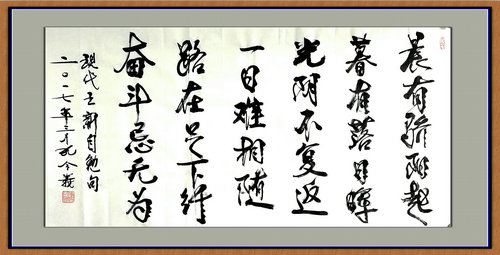 晨有骄阳起
暮有落日晖
光阴不复返
一日难相随
路在足下
奋斗忌无为
现代王新自勉句
二〇一七年三月孔令義